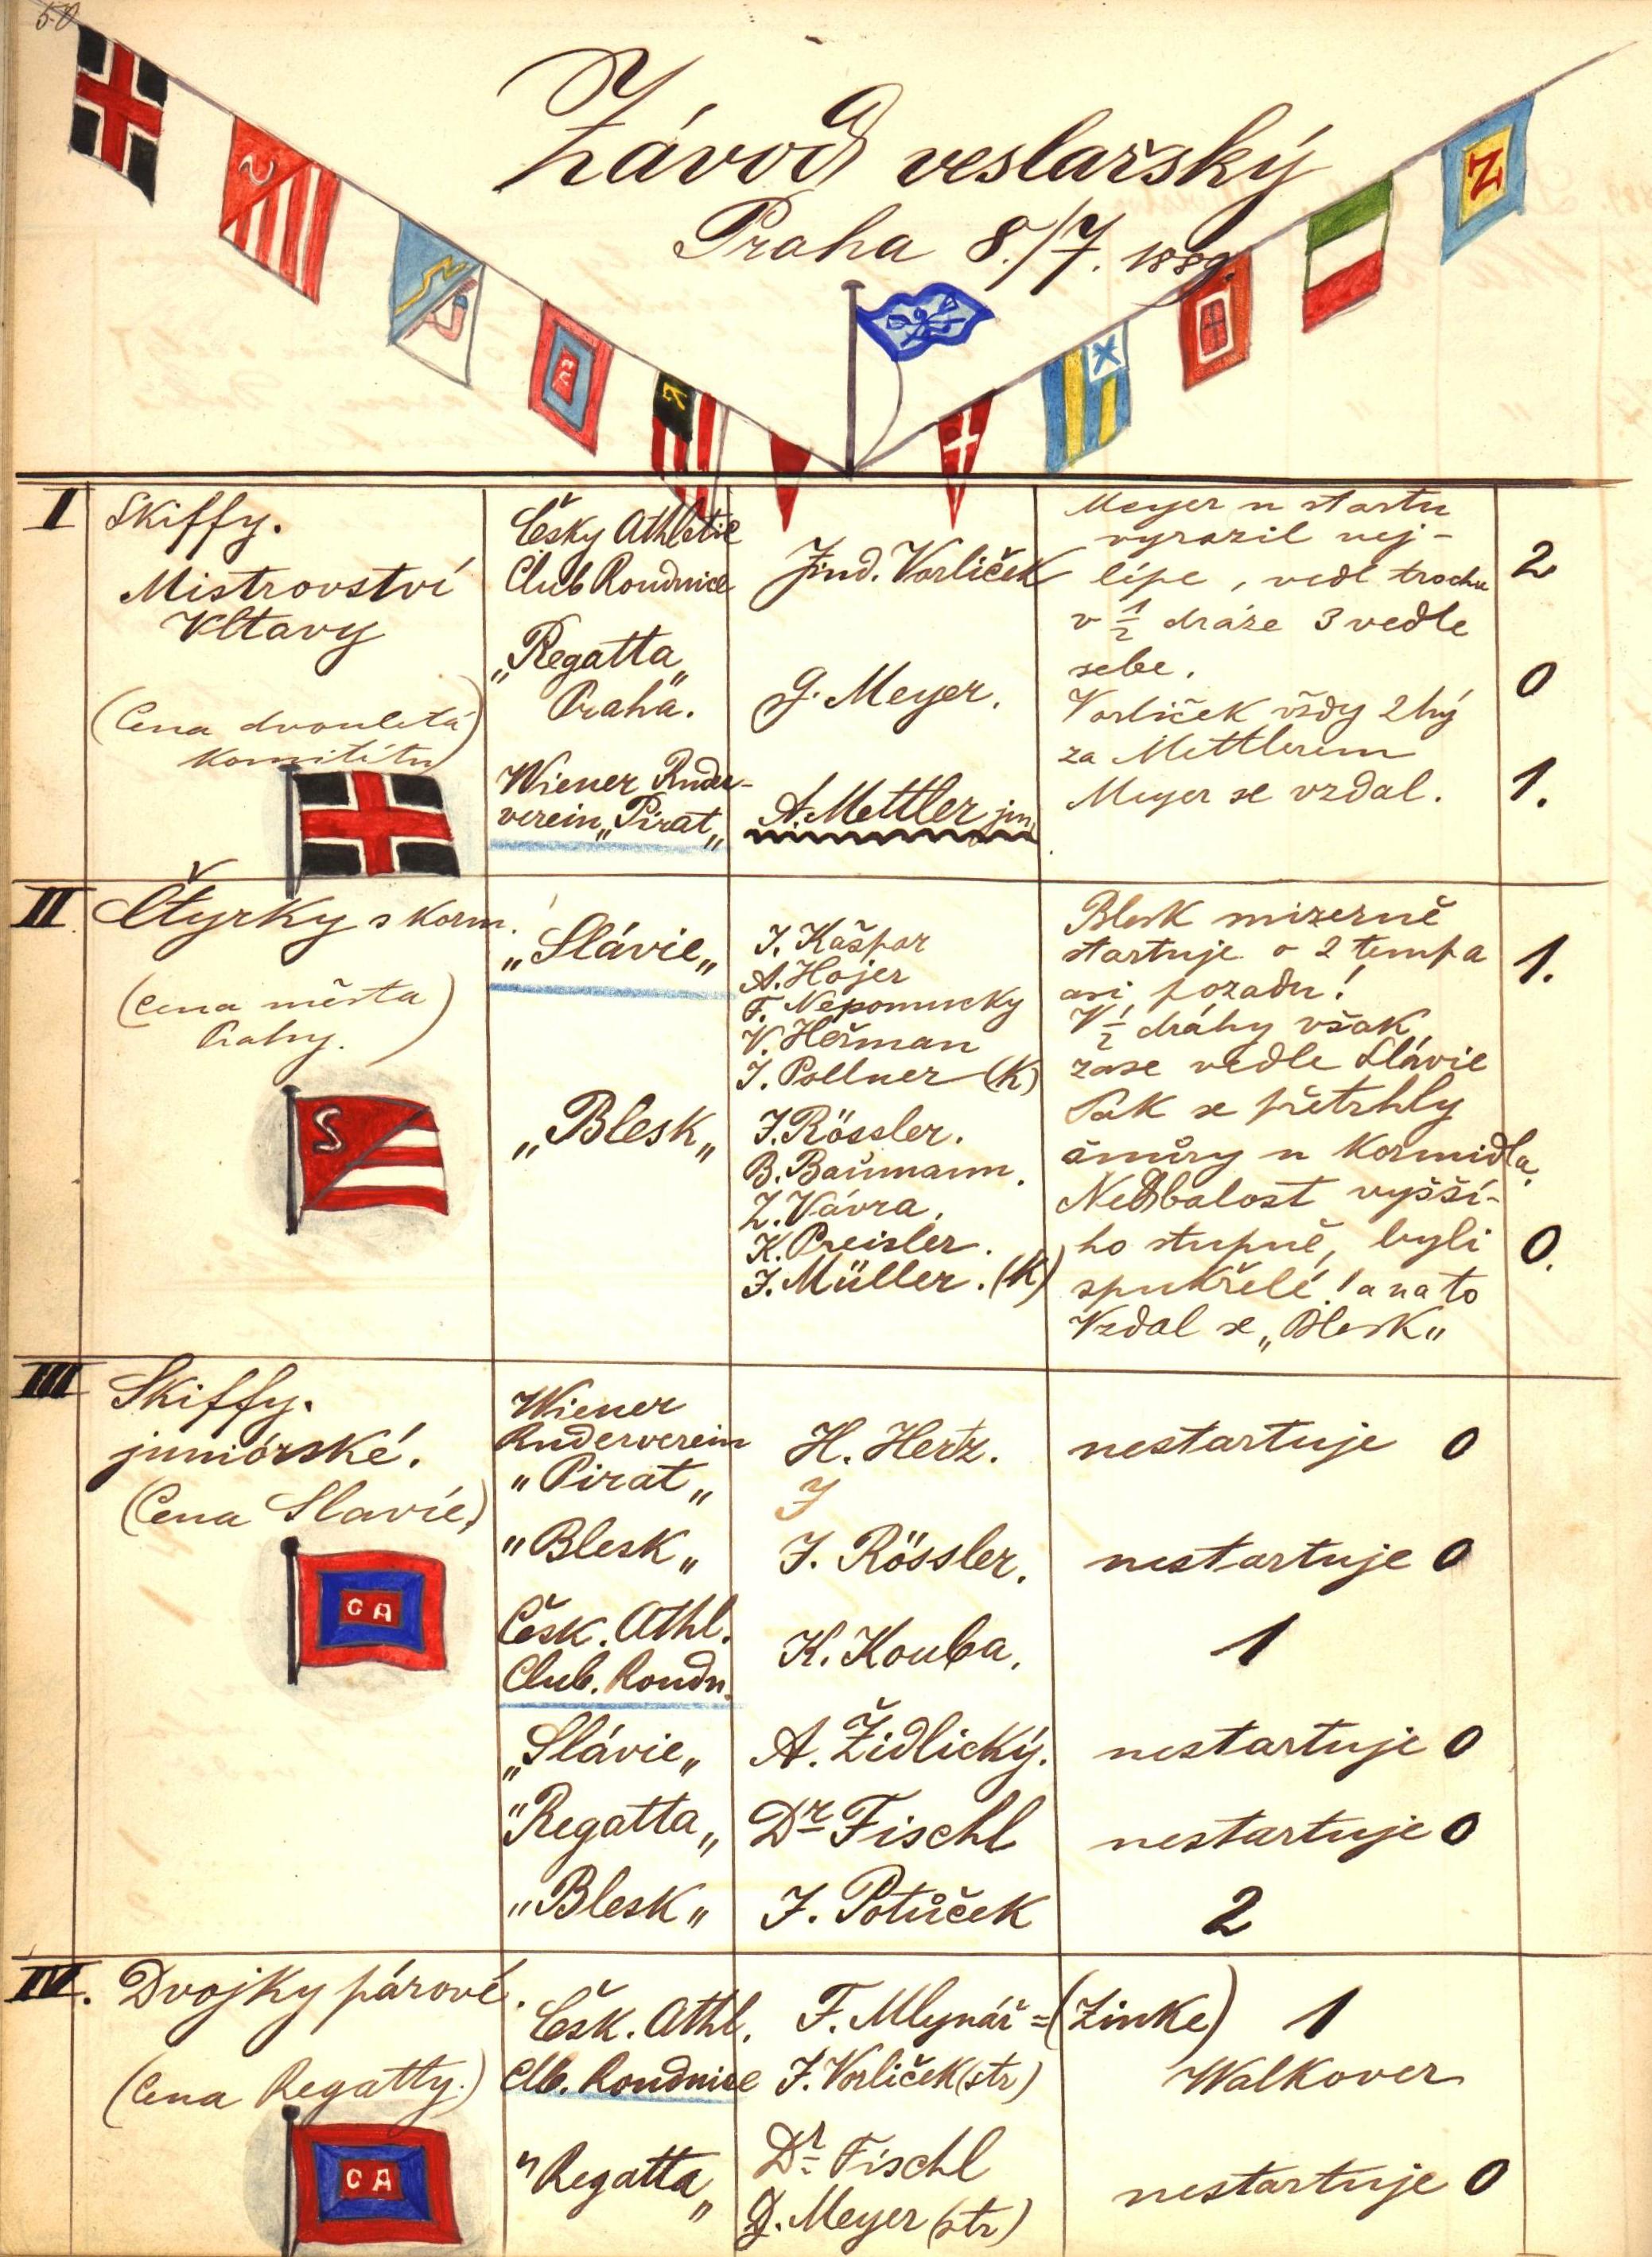 50
Závod veslařský
Praha 8./7. 1889.
I
Skiffy.
Mistrovství
Vltavy
(Cena dvouletá
komitétu)
Česky Athletic
Club Roudnice
Jind. Vorliček
2
„Regatta„
Praha.
G. Meyer.
0
Wiener Ruder-
verein „Pirat„
A. Mettler jun.
1.
Meyer u startu
vyrazil nej-
lépe, vedl trochu
v 1/2 dráze 3 vedle
sebe.
Vorliček vždy 2hý
za Mettlerem
Meyer se vzdal.
II
Čtyrky s korm.
(Cena města
Prahy.)
S
„Slávie„
J. Kašpar
A. Hojer
F. Nepomucky
V. Heřman
J. Pollner (K)
1.
„Blesk„
J. Rössler.
B. Baumann.
Z. Vávra.
K. Preisler.
J. Müller. (K)
0.
Blesk mizerně
startuje o 2 tempa
asi pozadu!
V 1/2 dráhy však
zase vedle Slávie
Pak se přetrhly
šnůry u kormidla.
Nedbalost vyšší-
ho stupně, byli
spukřelé! a na to
Vzdal se „Blesk„
III
Skiffy.
juniórské.
(Cena Slavie.)
C A
Wiener
Ruderverein
"Pirat„
H. Hertz.
nestartuje 0
J
"Blesk„
J. Rössler.
nestartuje 0
Česk. Athl.
Club. Roudn.
K. Kouba.
1
„Slávie„
A. Židlický.
nestartuje 0
"Regatta„
Dr Fischl
nestartuje 0
"Blesk„
J. Potůček
2
IV.
Dvojky párové.
(Cena Regatty.)
C A
Česk. Athl.
Clb. Roudnice
F. Mlynář = (Zinke) 1
J. Vorliček (str)
Walkover
"Regatta„
Dr. Fischl
G. Meyer (str)
nestartuje 0